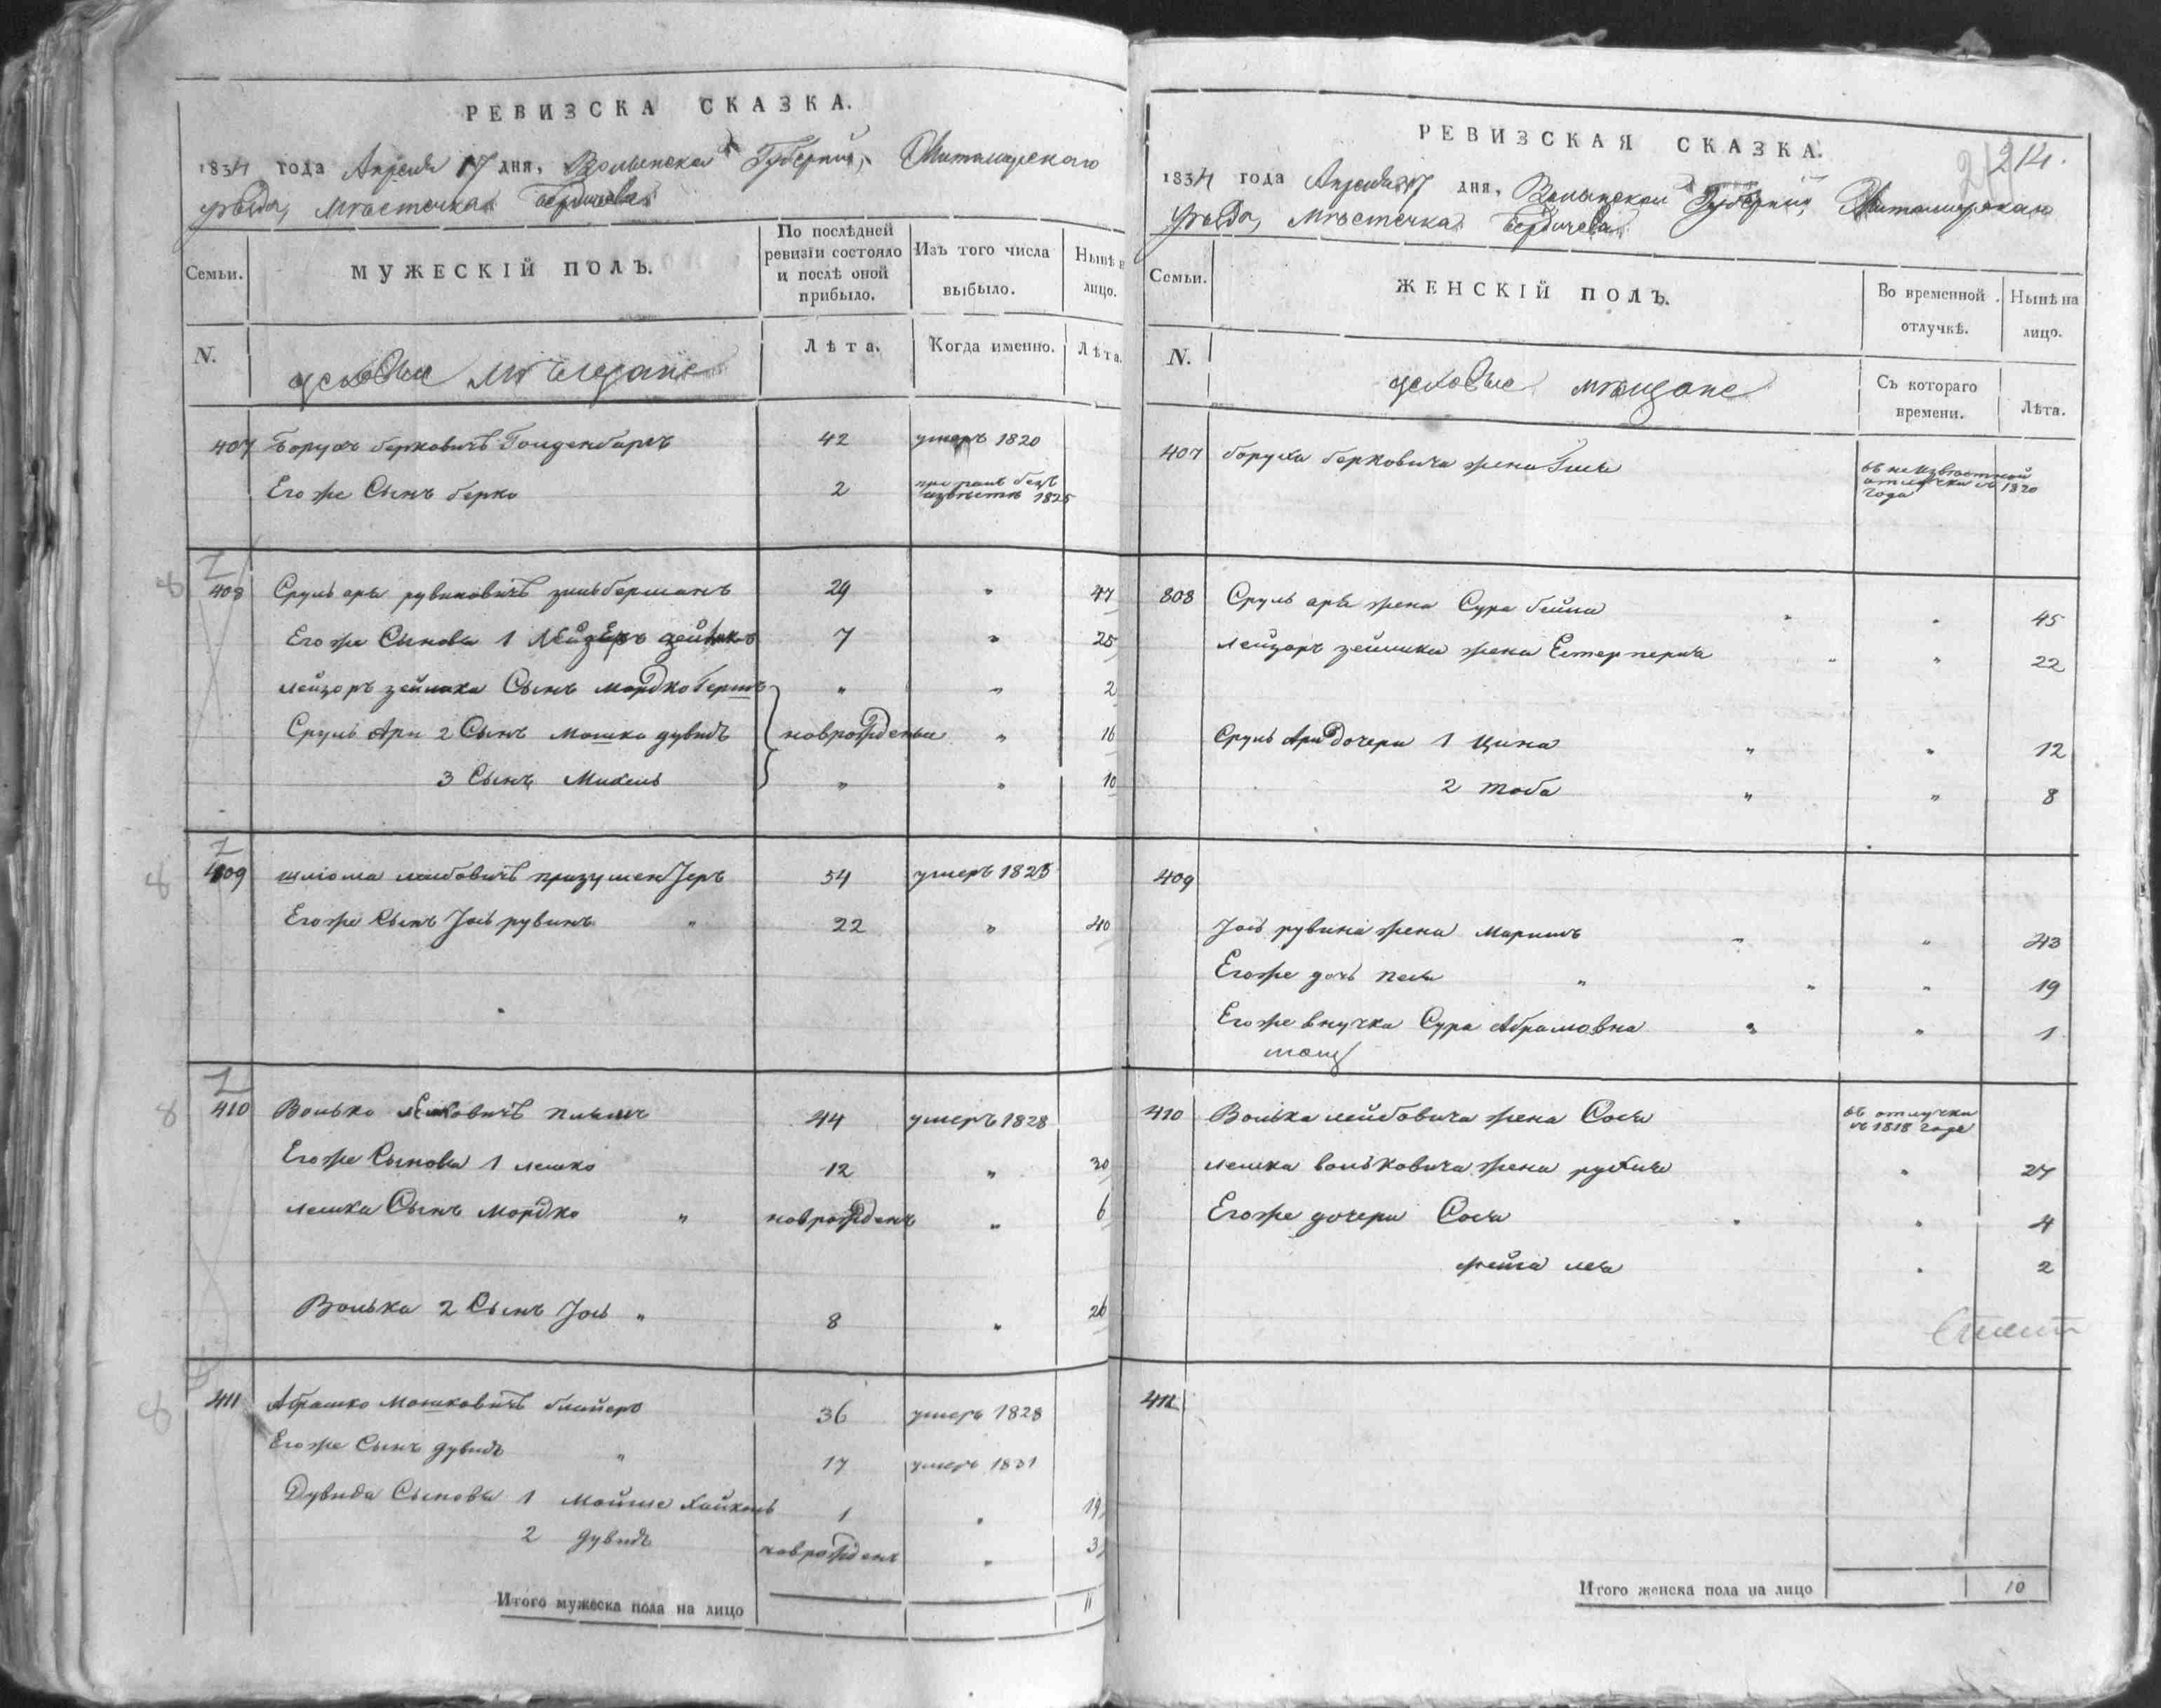 РЕВИЗСКА СКАЗКА.
1834 года Апреля 17 дня, Волынской Губернии, Житомирского
уезда, Мѣстечка Бердичева
Семьи.
МУЖЕСКІЙ ПОЛЪ.
По послѣдней
ревизіи состояло
и послѣ оной
прибыло.
Изъ того числа
выбыло.
Нынѣ н
лицо.
N.
Лѣта.
Когда именно.
Лѣта.
мѣщане
407 Борухъ берковичъ Гольденбергъ 42 умеръ 1820
Его же Сынъ берко 2 безъ
извѣстн 1825
408 Сруль арья рувиновичъ зильберманъ 29 " 47
Его же Сыновья 1 Лейзоръ зейликъ 7 " 25
лейзоръ зейлика Сынъ мордко Гершъ " " 2
Сруль Ари 2 Сынъ мошко дувидъ новрожденъи " 16
3 Сынъ Михель " " 10
409 шліома лейбовичъ призуменЈеръ 54 умеръ 1825
Его же Сынъ Јось рувинъ " 22 " 40
410 Волько лейбовичъ 44 умеръ 1828
Его же Сыновья 1 лешко 12 " 30
лешка Сынъ Мордко " новрожденъ " 6
Волька 2 Сынъ Јось " 8 " 26
411 Абрашко Мошковичъ 36 умеръ 1828
Его же Сынъ дувидъ " 17 умеръ 1831
Дувида Сыновья 1 мойше Хайкель 1 " 19
2 дувидъ новрожденъ " 3
Итого мужеска пола на лицо 11
РЕВИЗСКАЯ СКАЗКА.
214.
1834 года Апреля 17 дня, Волынской Губернии, Житомирскаго
уезда, Мѣстечка Бердичева
Семьи.
ЖЕНСКІЙ ПОЛЪ.
Во временной
отлучкѣ.
Нынѣ на
лицо.
N.
мѣщане
Съ котораго
времени.
Лѣта.
407 боруха берковича жена въ неизвѣстной
отлучки съ 1820
года
808 Сруль арья жена Сура бейла " " 45
лейзоръ зейлика жена Естер перля " " 22
Сруль Ари дочери 1 Цина " " 12
2 тоба " " 8
409
Јось рувина жена Маріимъ " " 43
Его же дочь песя " " " 19
Его же внучка Сура Абрамовна " " 1
410 Волька лейбовича жена Сося въ отлучки
съ 1818 года
лешка вольковича жена рухля " 27
Его же дочери Сося " " 4
фейга лея " 2
411
Итого женска пола на лицо 10